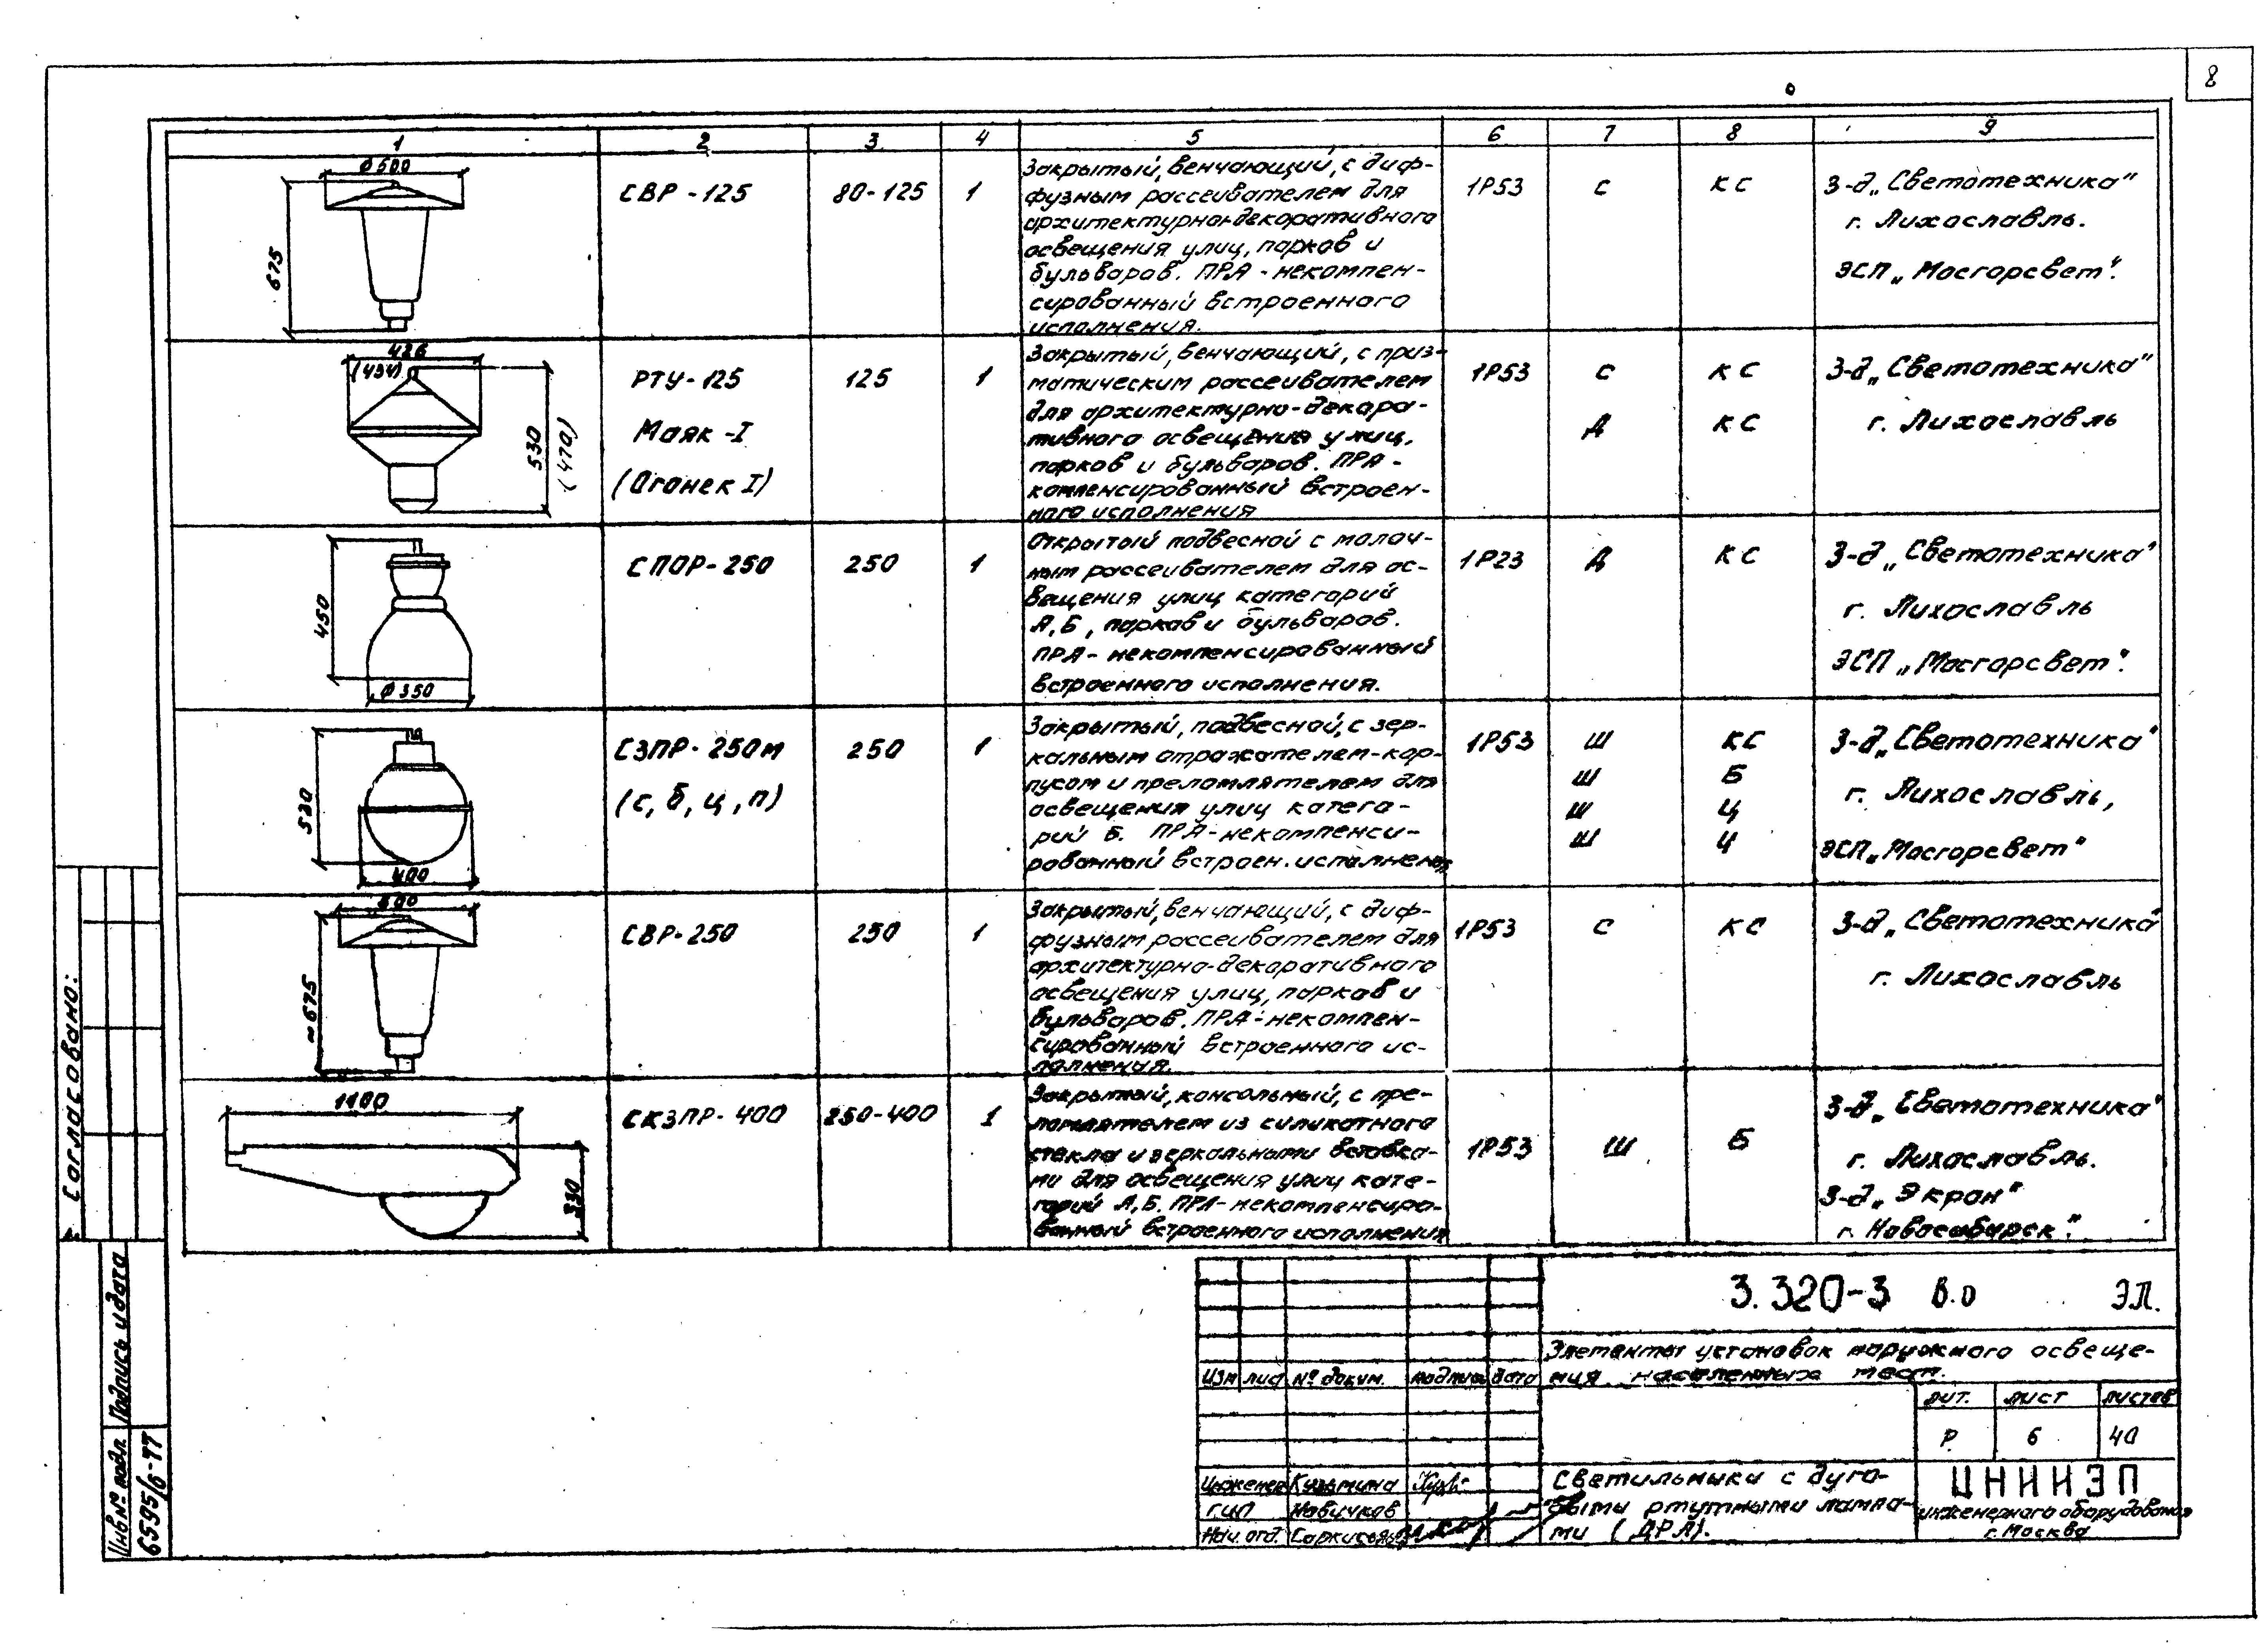 8
1 2 3 4 5 6 7 8 9
ø500
675
СВР-125
80-125
1
Закрытый, венчающий, с диф-
фузным рассеивателем для
архитектурно-декоративного
освещения улиц, парков и
бульваров. ПРА - некомпен-
сированный встроенного
исполнения.
1Р53
С
КС
З-д „Светотехника"
г. Лихославль.
ЭСП „Мосгорсвет".
426
(434)
530
(470)
РТУ-125
Маяк-I
(Огонек I)
125
1
Закрытый, венчающий, с приз-
матическим рассеивателем
для архитектурно-декора-
тивного освещения улиц,
парков и бульваров. ПРА -
компенсированный встроен-
ного исполнения
1Р53
С
КС
Д
КС
З-д „Светотехника"
г. Лихославль
450
ø350
СПОР-250
250
1
Открытый подвесной с молоч-
ным рассеивателем для ос-
вещения улиц категорий
А, Б, парков и бульваров.
ПРА - некомпенсированный
встроенного исполнения.
1Р23
Д
КС
З-д „Светотехника"
г. Лихославль
ЭСП „Мосгорсвет".
530
400
СЗПР-250м
(с, б, ц, п)
250
1
Закрытый, подвесной, с зер-
кальным отражателем-кор-
пусом и преломлятелем для
освещения улиц катего-
рий Б. ПРА-некомпенси-
рованный встроен. исполнения
1Р53
Ш
КС
Ш
Б
Ш
Ц
Ш
Ц
З-д „Светотехника"
г. Лихославль,
ЭСП „Мосгорсвет"
~675
СВР-250
250
1
Закрытый, венчающий, с диф-
фузным рассеивателем для
архитектурно-декоративного
освещения улиц, парков и
бульваров. ПРА-некомпен-
сированный встроенного ис-
полнения.
1Р53
С
КС
З-д „Светотехника"
г. Лихославль
1100
330
СКЗПР-400
250-400
1
Закрытый, консольный, с пре-
ломлятелем из силикатного
стекла и зеркальными вставка-
ми для освещения улиц кате-
горий А, Б. ПРА-некомпенсиро-
ванный встроенного исполнения
1Р53
Ш
Б
З-д „Светотехника"
г. Лихославль.
З-д „Экран"
г. Новосибирск".
Согласовано:
Подпись и дата
Инв № подл.
6595/6-77
3.320-3 В.О ЭЛ.
Элементы установок наружного освеще-
ния населенных мест.
Изм лист № докум. подпись дата
Лит. лист листов
Р 6 40
Инженер Кузьмина
ГИП Новичков
Нач. отд. Саркисьянц
Светильники с дуго-
выми ртутными лампа-
ми (ДРЛ).
ЦНИИЭП
инженерного оборудования
г. Москва